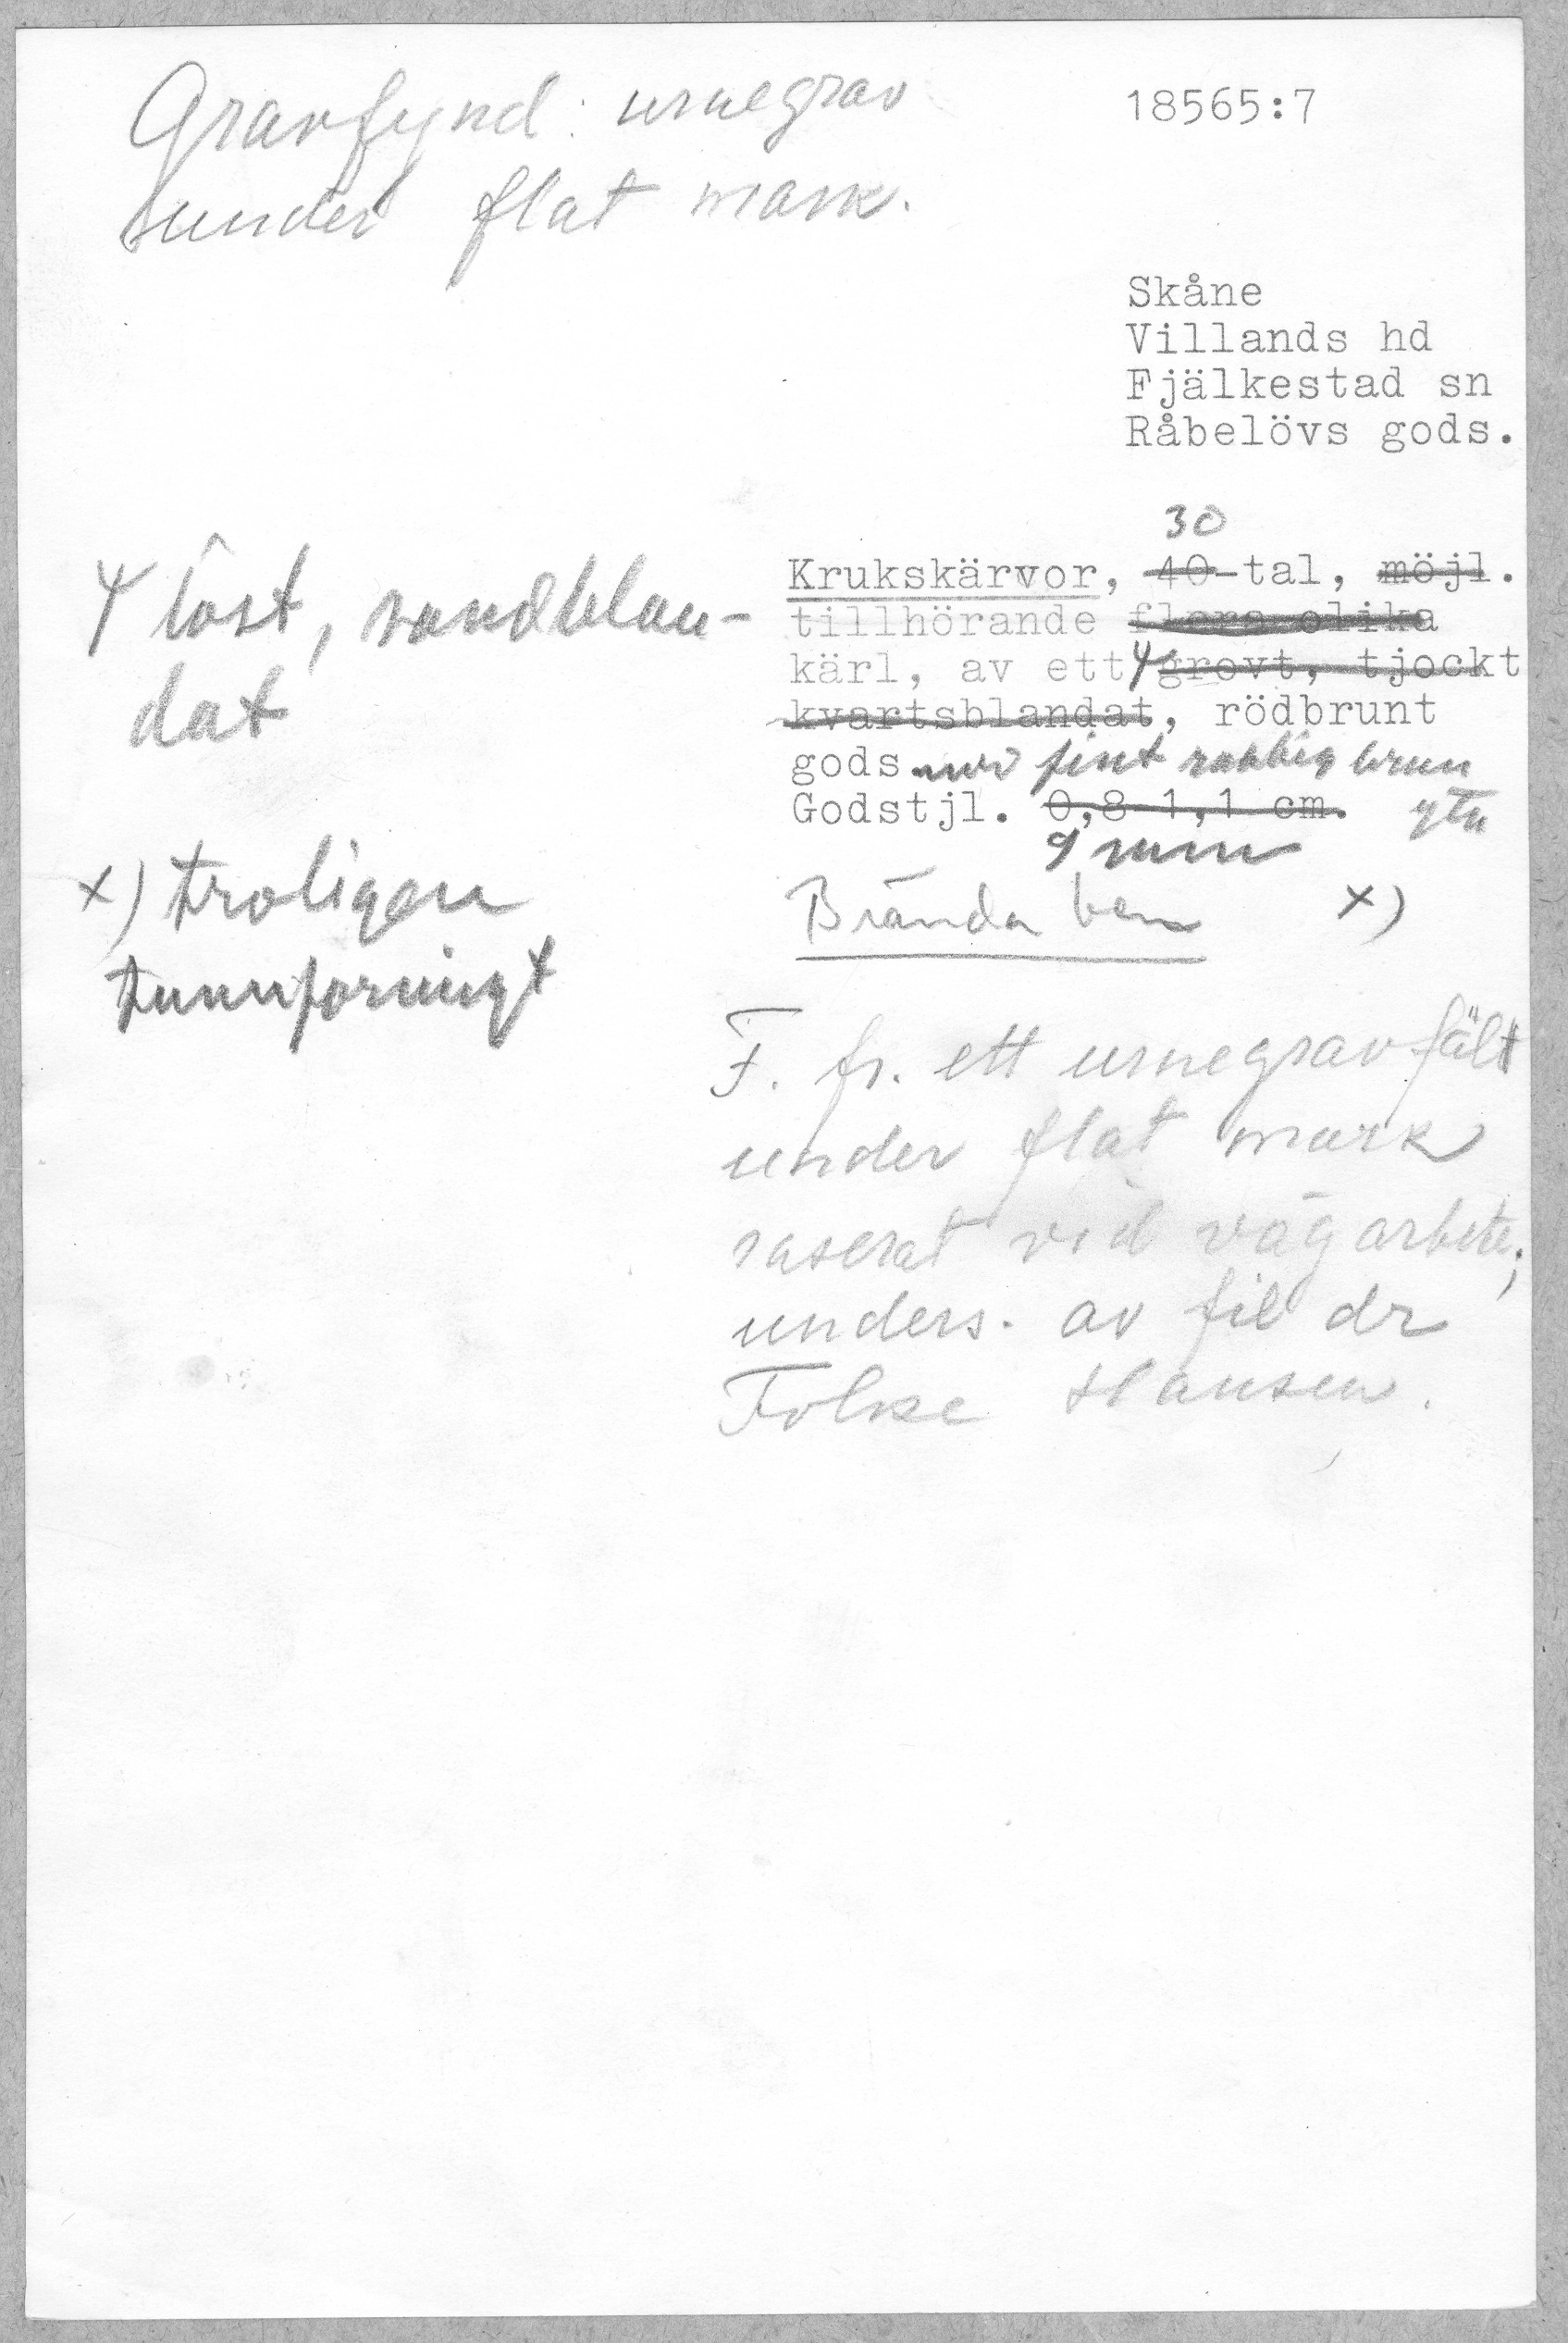 Gravfynd: urnegrav
under flat mark.
18565:7
Skåne
Villands hd
Fjälkestad sn
Råbelövs gods.
30
Krukskärvor, 40-tal, möjl.
tillhörande flera olika
kärl, av ett grovt, tjockt
kvartsblandat, rödbrunt
gods med fint rabbig brun
yta
Godstjl. 0,8-1,1 cm.
9 mm
Brända ben x)
löst, sandblan-
dat
x) troligen
tunnformigt
F. fr. ett urnegravfält
under flat mark
raserat vid vägarbete;
unders. av fil dr
Folke Hansen.